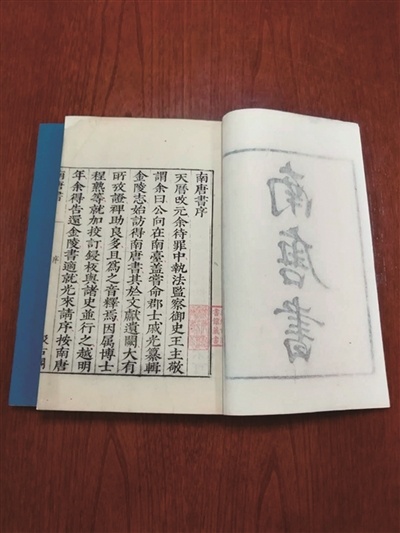 南唐書
南唐書序
天曆改元余待罪中執法監察御史王主敬
謂余曰公向在南臺蓋嘗命郡士戚光纂輯
金陵志始訪得南唐書其於文獻遺闕大有
所攷證裨助良多且為之音釋焉因属博士
程熟等就加校訂鋟板與諸史並行之越明
年余得告還金陵書適就光來請序按南唐
序